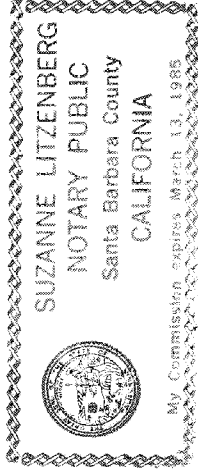 SUZANNE LITZENBERG
NOTARY PUBLIC
Santa Barbara County
CALIFORNIA
My Commission expires March 15, 1985